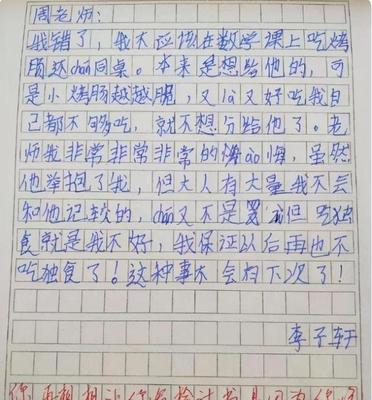 周老师：
我错了，我不应该在数学课上吃烤
肠还chán同桌。本来是想给他的，可
是小烤肠越越脆，又là又好吃我自
己都不够吃，就不想分给他了。老
师我非常非常非常的悔ào悔，虽然
他举抱了我，但大人有大量我不会
和他记较的，chán又不是罪但吃独
食就是我不好，我保证以后再也不
吃独食了！这种事不会有下次了！
李子轩
你再想想